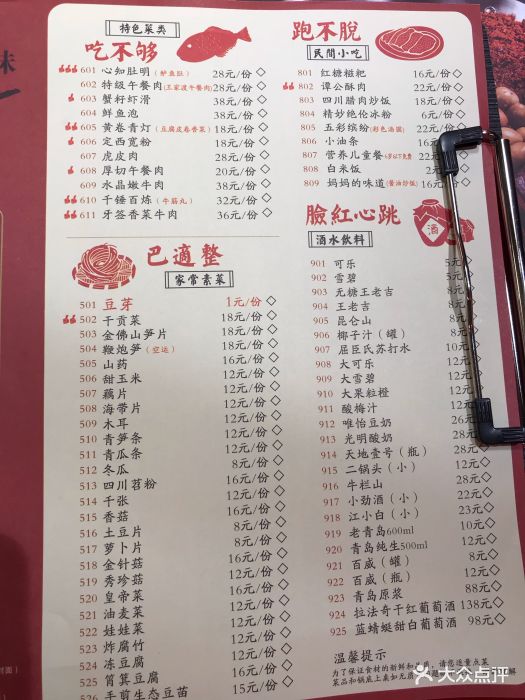 特色菜类
吃不够
601 心知肚明(鲈鱼肚) 28元/份
602 特级午餐肉(王家渡午餐肉) 28元/份
603 蟹籽虾滑 38元/份
604 鲜鱼泡 38元/份
605 黄卷青灯(豆腐皮卷香菜) 18元/份
606 定西宽粉 16元/份
607 虎皮肉 28元/份
608 厚切午餐肉 20元/份
609 水晶嫩牛肉 38元/份
610 千锤百炼(牛筋丸) 32元/份
611 牙签香菜牛肉 36元/份
巴適整
家常素菜
501 豆芽 1元/份
502 干贡菜 18元/份
503 金佛山笋片 18元/份
504 鞭炮笋(空运) 18元/份
505 山药 16元/份
506 甜玉米 12元/份
507 藕片 12元/份
508 海带片 12元/份
509 木耳 12元/份
510 青笋条 12元/份
511 青瓜条 12元/份
512 冬瓜 8元/份
513 四川苕粉 16元/份
514 千张 12元/份
515 香菇 16元/份
516 土豆片 8元/份
517 萝卜片 8元/份
518 金针菇 16元/份
519 秀珍菇 12元/份
520 皇帝菜 15元/份
521 油麦菜 12元/份
522 娃娃菜 12元/份
523 炸腐竹 12元/份
524 冻豆腐 12元/份
525 筲箕豆腐 16元/份
526 手剪生态豆苗
跑不脫
民間小吃
801 红糖糍粑 16元/份
802 谭公酥肉 22元/份
803 四川腊肉炒饭 22元/份
804 精妙绝伦冰粉 6元/份
805 五彩缤纷(彩色汤圆) 22元/份
806 小油条 16元/份
807 营养儿童餐(6岁以下免费) 22元/份
808 白米饭 2元/份
809 妈妈的味道(酱油炒饭) 16元/份
臉紅心跳
酒
酒水飲料
901 可乐 5元
902 雪碧 5元
903 无糖王老吉
904 王老吉
905 昆仑山
906 椰子汁(罐) 8元
907 屈臣氏苏打水 10元
908 大可乐 12元
909 大雪碧 12元
910 大果粒橙 12元
911 酸梅汁 26元
912 唯怡豆奶 26元
913 光明酸奶 28元
914 天地壹号(瓶)
915 二锅头(小) 12元
916 牛栏山 28元
917 小劲酒(小) 22元
918 江小白(小) 23元
919 老青岛600ml 10元
920 青岛纯生500ml 12元
921 百威(罐) 8元
922 百威(瓶) 12元
923 青岛原浆
924 拉法奇干红葡萄酒 138元
925 蓝蜻蜓甜白葡萄酒 98元
温馨提示
为了保证食材的新鲜和
菜品和锅底上桌如无质
大众点评